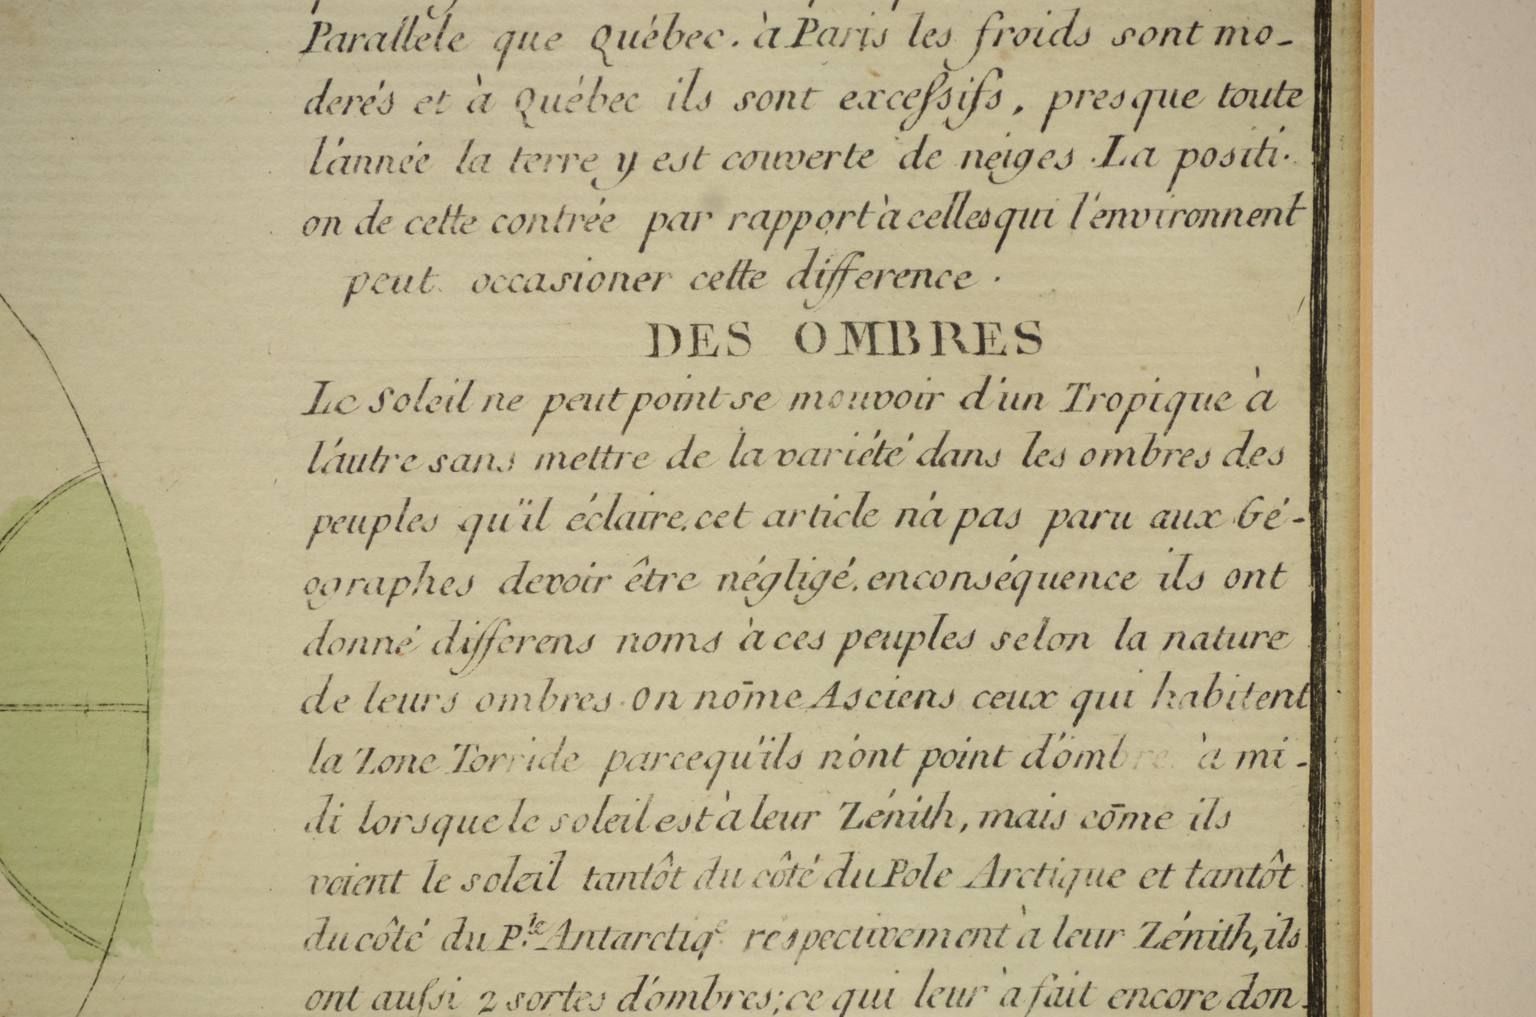 Parallele que Québec. à Paris les froids sont mo-
derés et à Québec ils sont exceſsifs, presque toute
l'année la terre y est couverte de neiges. La positi-
on de cette contrée par rapport à celles qui l'environnent
peut occasioner cette difference.
DES OMBRES
Le Soleil ne peut point se mouvoir d'un Tropique à
l'autre sans mettre de la variété dans les ombres des
peuples qu'il éclaire. cet article n'a pas paru aux Gé-
ographes devoir être négligé. enconséquence ils ont
donné differens noms à ces peuples selon la nature
de leurs ombres. On nōme Asciens ceux qui habitent
la Zone Torride parcequ'ils n'ont point d'ombre à mi-
di lorsque le soleil est à leur Zénith, mais cōme ils
voient le soleil tantôt du côté du Pole Arctique et tantôt
du côté du P.le Antarctiq.e respectivement à leur Zénith, ils
ont auſsi 2 sortes d'ombres; ce qui leur à fait encore don-